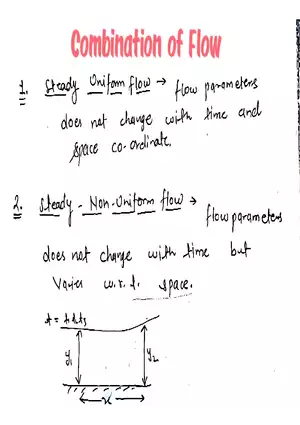 Combination of Flow
1. Steady Uniform flow → flow parameters
does not change with time and
space co-ordinate.
2. Steady - Non-Uniform flow → flow parameters
does not change with time but
Varies w.r.t. space.
t = t1 t2 t3
y1
y2
x